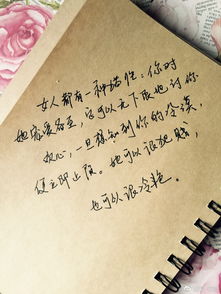 女人都有一种错性，你对
她宠爱备至，它可以无下限地讨你
欢心，一旦感知到你的冷漠，
便立即止限。她可以很犯贱，
也可以很冷艳。